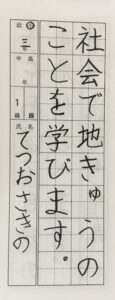 社会で地きゅうの
ことを学びます。
幼小中高
三年
1級段
氏名
てつおさきの